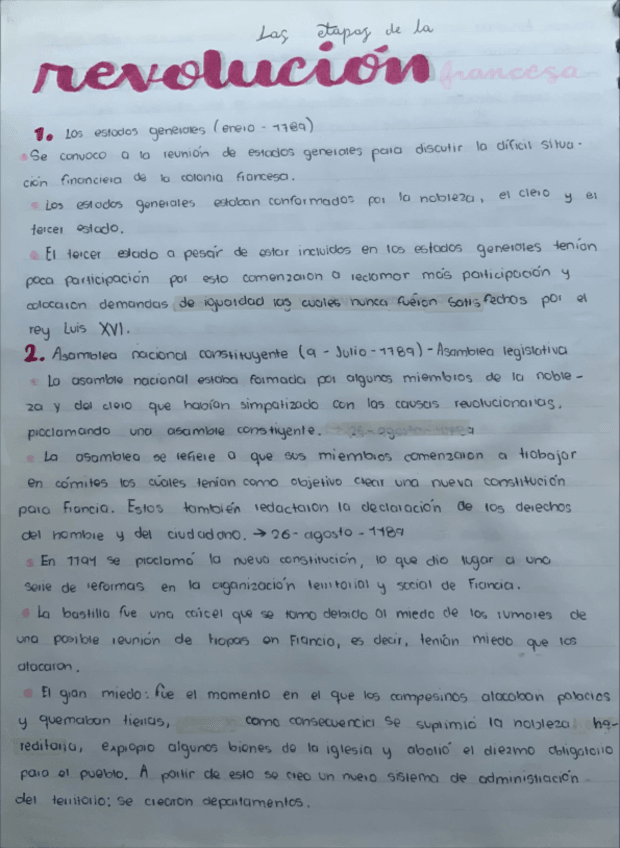 Las etapas de la
revolución francesa
1. Los estados generales (enero - 1789)
Se convoco a la reunión de estados generales para discutir la difícil situa-
ción financiera de la colonia francesa.
Los estados generales estaban conformados por la nobleza, el clero y el
tercer estado.
El tercer estado a pesar de estar incluidos en los estados generales tenían
poca participación por esto comenzaron a reclamar más participación y
colocaron demandas de igualdad las cuales nunca fueron satisfechos por el
rey Luis XVI.
2. Asamblea nacional constituyente (9 - Julio - 1789) - Asamblea legislativa
La asamble nacional estaba formada por algunos miembros de la noble-
za y del clero que habían simpatizado con las causas revolucionarias,
proclamando una asamble constiyente.
La asamblea se refiere a que sus miembros comenzaron a trabajar
en cómites los cuales tenían como objetivo crear una nueva constitución
para Francia. Estos también redactaron la declaración de los derechos
del hombre y del ciudadano. → 26 - agosto - 1789
En 1791 se proclamó la nueva constitución, lo que dio lugar a una
serie de reformas en la organización territorial y social de Francia.
La bastilla fue una cárcel que se tomo debido al miedo de los rumores de
una posible reunión de tropas en Francia, es decir, tenían miedo que los
atacaran.
El gran miedo: fue el momento en el que los campesinos atacaban palacios
y quemaban tierras, como consecuencia se suprimió la nobleza he-
reditaria, expropio algunos bienes de la iglesia y abolió el diezmo obligatorio
para el pueblo. A partir de esto se creo un nuevo sistema de administración
del territorio: se crearon departamentos.